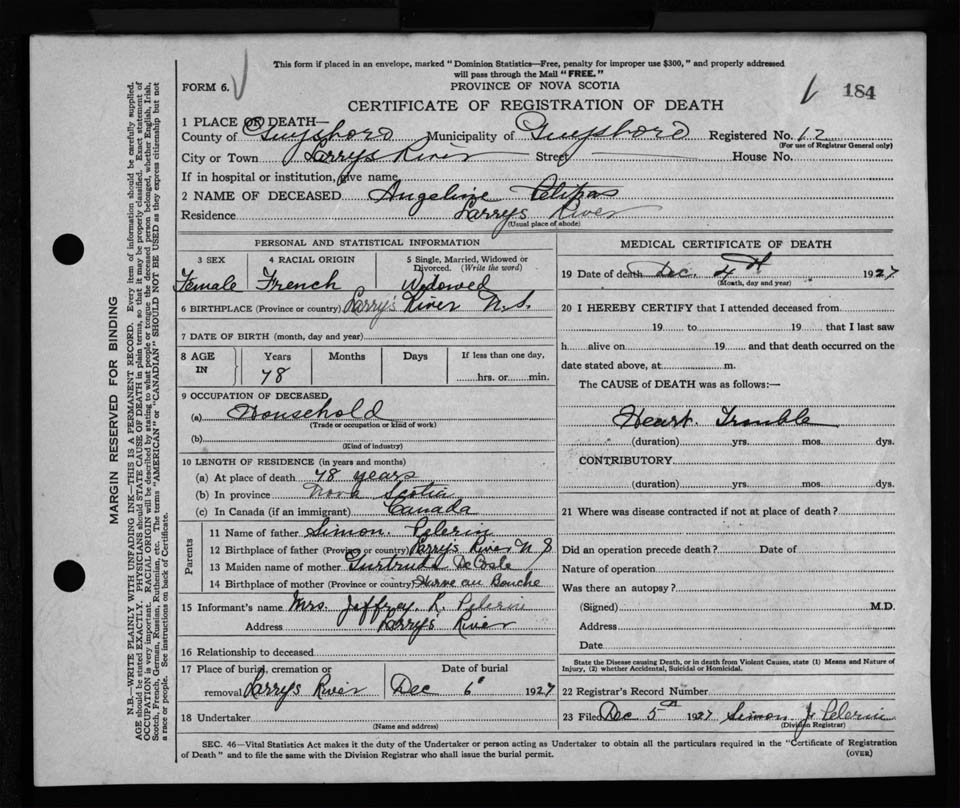 This form if placed in an envelope, marked "Dominion Statistics—Free, penalty for improper use $300," and properly addressed
will pass through the Mail "FREE."
FORM 6.
PROVINCE OF NOVA SCOTIA
184
CERTIFICATE OF REGISTRATION OF DEATH
1 PLACE OF DEATH—
County of Guysboro Municipality of Guysboro Registered No. 12
(For use of Registrar General only)
City or Town Larrys River Street House No.
If in hospital or institution, give name
2 NAME OF DECEASED Angeline Petipas
Residence Larrys River
(Usual place of abode)
PERSONAL AND STATISTICAL INFORMATION
3 SEX 4 RACIAL ORIGIN 5 Single, Married, Widowed or Divorced. (Write the word)
Female French Widowed
6 BIRTHPLACE (Province or country) Larry's River N.S.
7 DATE OF BIRTH (month, day and year)
8 AGE IN Years Months Days If less than one day,
78 hrs. or min.
9 OCCUPATION OF DECEASED
(a) Household
(Trade or occupation or kind of work)
(b)
(Kind of industry)
10 LENGTH OF RESIDENCE (in years and months)
(a) At place of death 78 years
(b) In province Nova Scotia
(c) In Canada (if an immigrant) Canada
Parents
11 Name of father Simon Pelerin
12 Birthplace of father (Province or country) Larry's River N S
13 Maiden name of mother Gurtrude DeCoste
14 Birthplace of mother (Province or country) Havre au Bouche
15 Informant's name Mrs. Jeffrey L. Pelerin
Address Larry's River
16 Relationship to deceased
17 Place of burial, cremation or Date of burial
removal Larrys River Dec 6 1927
18 Undertaker
(Name and address)
MEDICAL CERTIFICATE OF DEATH
19 Date of death Dec. 4th 1927
(Month, day and year)
20 I HEREBY CERTIFY that I attended deceased from
19 to 19 that I last saw
h alive on 19 and that death occurred on the
date stated above, at m.
The CAUSE of DEATH was as follows:—
Heart Trouble
(duration) yrs. mos. dys.
CONTRIBUTORY
(duration) yrs. mos. dys.
21 Where was disease contracted if not at place of death?
Did an operation precede death? Date of
Nature of operation
Was there an autopsy?
(Signed) M.D.
Address
Date
State the Disease causing Death, or in death from Violent Causes, state (1) Means and Nature of
Injury, (2) whether Accidental, Suicidal or Homicidal.
22 Registrar's Record Number
23 Filed Dec 5th 1927 Simon J Pelerin
(Division Registrar)
SEC. 46—Vital Statistics Act makes it the duty of the Undertaker or person acting as Undertaker to obtain all the particulars required in the "Certificate of Registration
of Death" and to file the same with the Division Registrar who shall issue the burial permit.
(OVER)
MARGIN RESERVED FOR BINDING
N.B.—WRITE PLAINLY WITH UNFADING INK—THIS IS A PERMANENT RECORD. Every item of information should be carefully supplied.
AGE should be stated EXACTLY. PHYSICIANS should STATE CAUSE OF DEATH in plain terms, so that it may be properly classified. Exact statement of
OCCUPATION is very important. RACIAL ORIGIN will be described by stating to what people or tongue the deceased person belonged, whether English, Irish,
Scotch, French, German, Russian, Ruthenian, etc. The terms "AMERICAN" or "CANADIAN" SHOULD NOT BE USED as they express citizenship but not
a race or people. See instructions on back of Certificate.